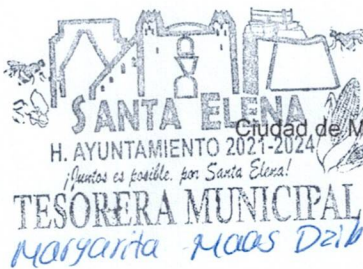 SANTA ELENA
Ciudad de M
H. AYUNTAMIENTO 2021-2024
¡Juntos es posible, por Santa Elena!
TESORERA MUNICIPAL
Margarita Maas Dzib